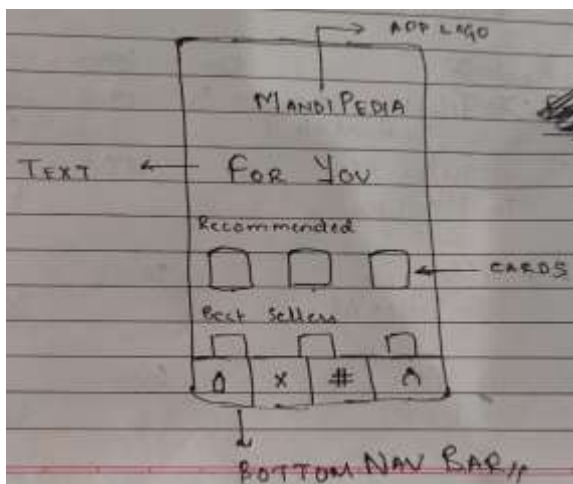 APP LOGO
MANDIPEDIA
TEXT
FOR YOU
Recommended
CARDS
Best Sellers
X #
BOTTOM NAV BAR